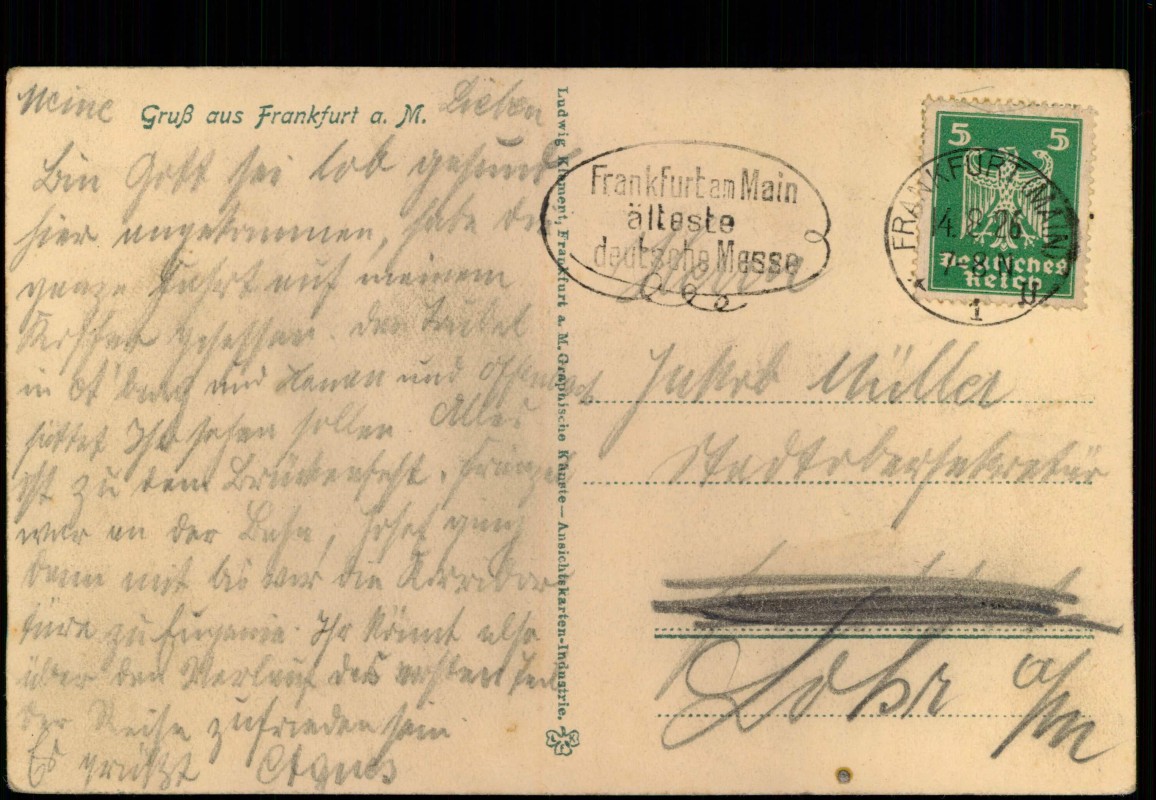 Meine Lieben
Gruß aus Frankfurt a. M.
Bin Gott sei lob gesund
hier angekommen, habe die
ganze Fahrt auf meinem
Koffer gesessen. Den Trubel
in A'burg und Hanau und Offenbach
hättet Ihr sehen sollen Alles
ist zu dem Brückenfest.
war an der Bahn, Josef ging
dann mit bis vor die Korridor
türe zu Eugenie. Ihr könnt also
über den Verlauf des ersten Teil
der Reise zufrieden sein
Es grüßt Agnes
Ludwig Klement, Frankfurt a. M. Graphische Künste — Ansichtskarten-Industrie.
Frankfurt am Main
älteste
deutsche Messe
5 5
Deutsches
Reich
FRANKFURT (MAIN)
14. 8. 26
7-8 N
* 1 u
Herrn
Jakob Müller
Stadtobersekretär
Lohr a/m